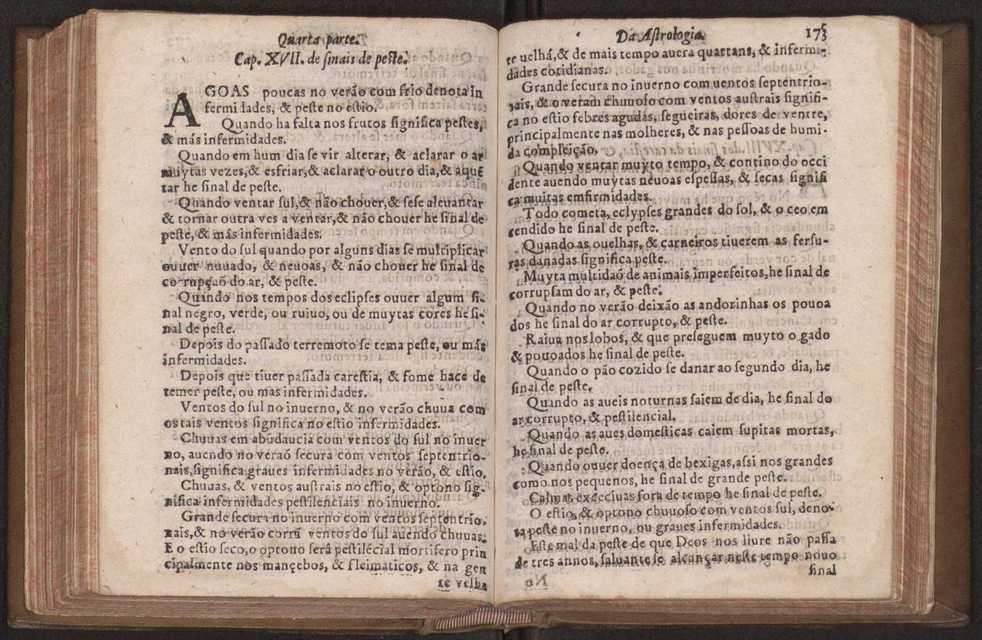 Quarta parte.
Cap. XVII. de sinais de peste.
AGOAS poucas no verão com frio denota in
fermi lades, & peste no estio.
Quando ha falta nos frutos significa pestes,
& más infermidades.
Quando em hum dia se vir alterar, & aclarar o ar
muytas vezes, & esfriar, & aclarar o outro dia, & aquē
tar he sinal de peste.
Quando ventar sul, & não chouer, & se se aleuantar
& tornar outra ves a ventar, & não chouer he sinal de
peste, & más infermidades.
Vento do sul quando por alguns dias se multiplicar
ouuer nuuado, & neuoas, & não chouer he sinal de
corrupção do ar, & peste.
Quando nos tempos dos eclipses ouuer algum si-
nal negro, verde, ou ruiuo, ou de muytas cores he si-
nal de peste.
Depois do passado terremoto se tema peste, ou más
infermidades.
Depois que tiuer passada carestia, & fome hace de
temer peste, ou mas infermidades.
Ventos do sul no inuerno, & no verão chuua com
os tais ventos significa no estio infermidades.
Chuuas em abūdaucia com ventos do sul no inuer
no, auendo no veraõ secura com ventos septentrio-
nais, significa graues infermidades no verão, & estio.
Chuuas, & ventos austrais no estio, & optono sig-
nifica infermidades pestilenciais no inuerno.
Grande secura no inuerno com ventos septentrio.
nais, & no verão corrū ventos do sul auendo chuuas.
E o estio seco, o optono será pestilēcial mortifero prin
cipalmente nos mançebos, & fleimaticos, & na gen
te velha
Da Astrologia. 173
te uelhá, & de mais tempo auera quartans, & infermi-
dades cotidianas.
Grande secura no inuerno com uentos septentrio-
nais, & o veram chuuoso com ventos austrais signifi-
ca no estio febres agudas, segueiras, dores de ventre,
principalmente nas molheres, & nas pessoas de humi-
da compleição.
Quando ventar muyto tempo, & contino do occi
dente auendo muytas neuoas espessas, & secas signifi
ca muitas emfirmidades.
Todo cometa, eclypses grandes do sol, & o ceo em
cendido he sinal de peste.
Quando as ouelhas, & carneiros tiuerem as fersu-
ras danadas significa peste.
Muyta multidaõ de animais imperfeitos, he sinal de
corrupsam do ar, & peste.
Quando no verão deixão as andorinhas os pouoa
dos he sinal do ar corrupto, & peste.
Raiua nos lobos, & que preseguem muyto o gado
& pouoados he sinal de peste.
Quando o pão cozido se danar ao segundo dia, he
sinal de peste.
Quando as aueis noturnas saiem de dia, he sinal do
ar corrupto, & pestilencial.
Quando as aues domesticas caiem supitas mortas,
he sinal de peste.
Quando ouuer doença de bexigas, assi nos grandes
como nos pequenos, he sinal de grande peste.
Calmas excecivas fora de tempo he sinal de peste.
O estio, & optono chuuoso com ventos sul, deno-
ta peste no inuerno, ou graues infermidades.
Este mal da peste de que Deos nos liure não passa
de tres annos, saluante se alcançar neste tempo nouo
sinal